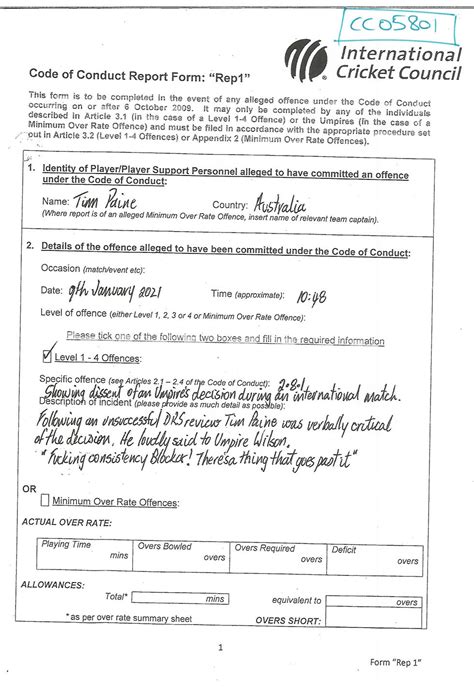 CC05801
International
Cricket Council
Code of Conduct Report Form: "Rep1"
This form is to be completed in the event of any alleged offence under the Code of Conduct
occurring on or after 6 October 2009. It may only be completed by any of the individuals
described in Article 3.1 (in the case of a Level 1-4 Offence) or the Umpires (in the case of a
Minimum Over Rate Offence) and must be filed in accordance with the appropriate procedure set
out in Article 3.2 (Level 1-4 Offences) or Appendix 2 (Minimum Over Rate Offences).
1. Identity of Player/Player Support Personnel alleged to have committed an offence
under the Code of Conduct:
Name: Tim Paine Country: Australia
(Where report is of an alleged Minimum Over Rate Offence, insert name of relevant team captain).
2. Details of the offence alleged to have been committed under the Code of Conduct:
Occasion (match/event etc):
Date: 9th January 2021 Time (approximate): 10:48
Level of offence (either Level 1, 2, 3 or 4 or Minimum Over Rate Offence):
Please tick one of the following two boxes and fill in the required information
✓ Level 1 - 4 Offences:
Specific offence (see Articles 2.1 – 2.4 of the Code of Conduct): 2.8.1
Showing dissent of an Umpire's decision during an international match.
Description of incident (please provide as much detail as possible):
Following an unsuccessful DRS review Tim Paine was verbally critical
of the decision. He loudly said to Umpire Wilson.
"Fucking consistency Blocker! Theres a thing that goes past it"
OR
Minimum Over Rate Offences:
ACTUAL OVER RATE:
Playing Time Overs Bowled Overs Required Deficit
mins overs overs overs
ALLOWANCES:
Total* mins equivalent to overs
*as per over rate summary sheet OVERS SHORT:
1
Form "Rep 1"